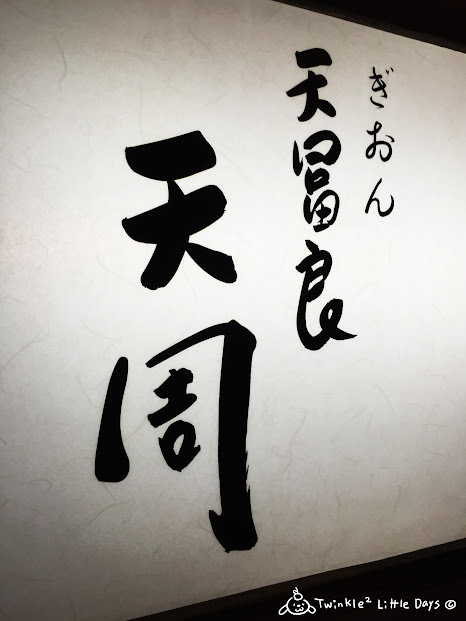 ぎおん
天冨良
天周
Twinkle² Little Days ©